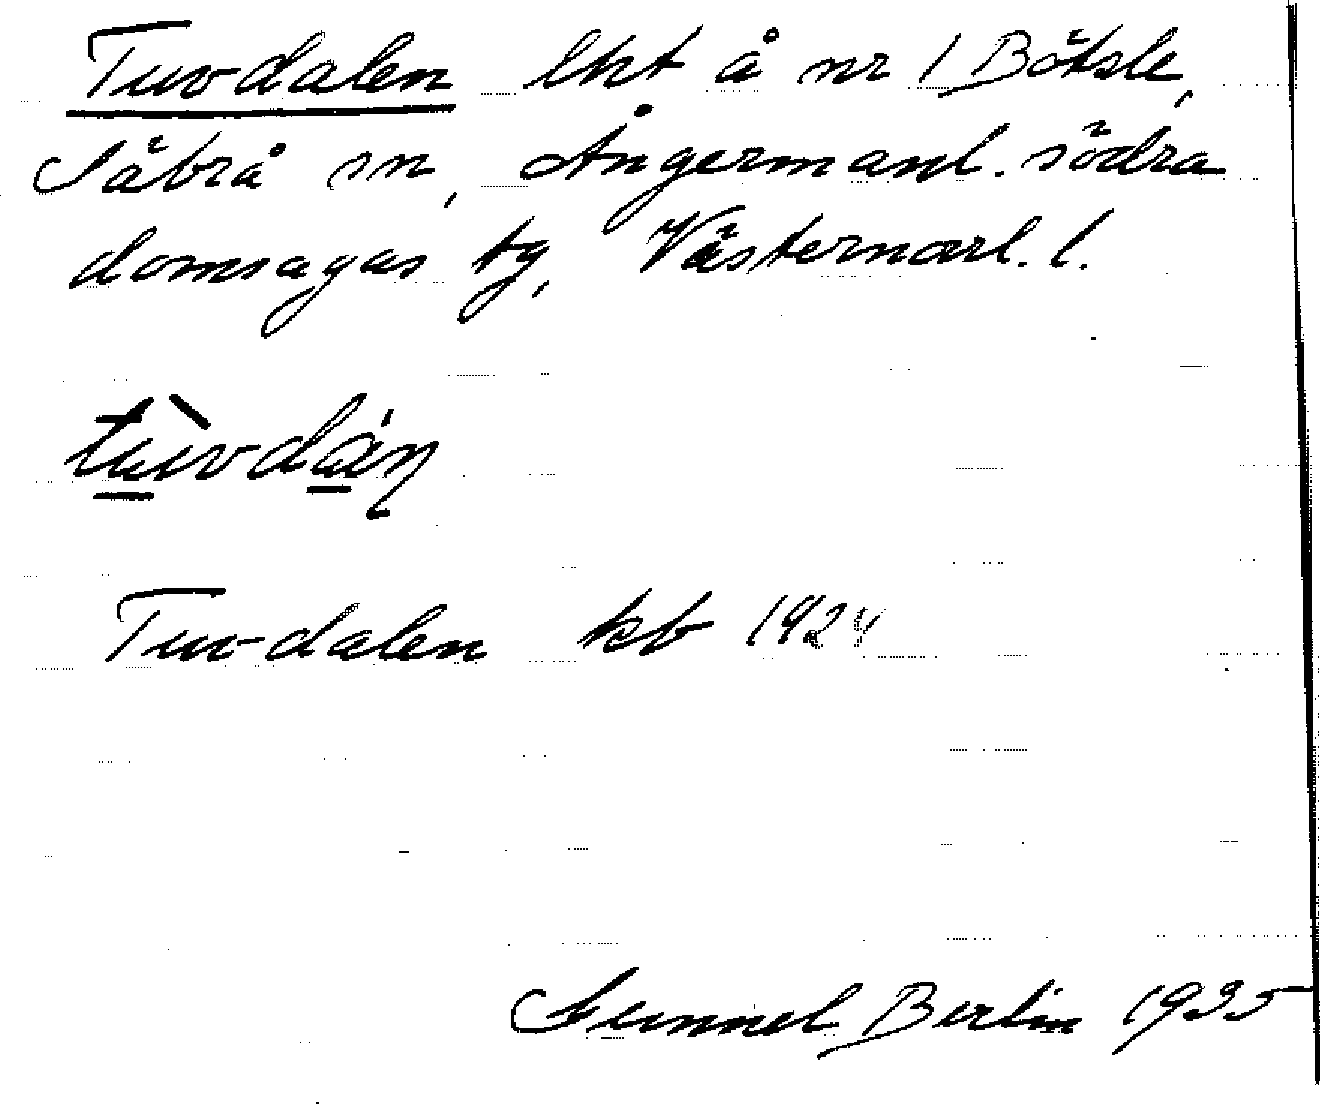 Tuvdalen lht å nr 1 Bötsle,
Säbrå sn, Ångermanl. södra
domsagas tg, Västernorrl. l.
tùvdán
Tuvdalen kb 1924
Gunnel Berlin 1935